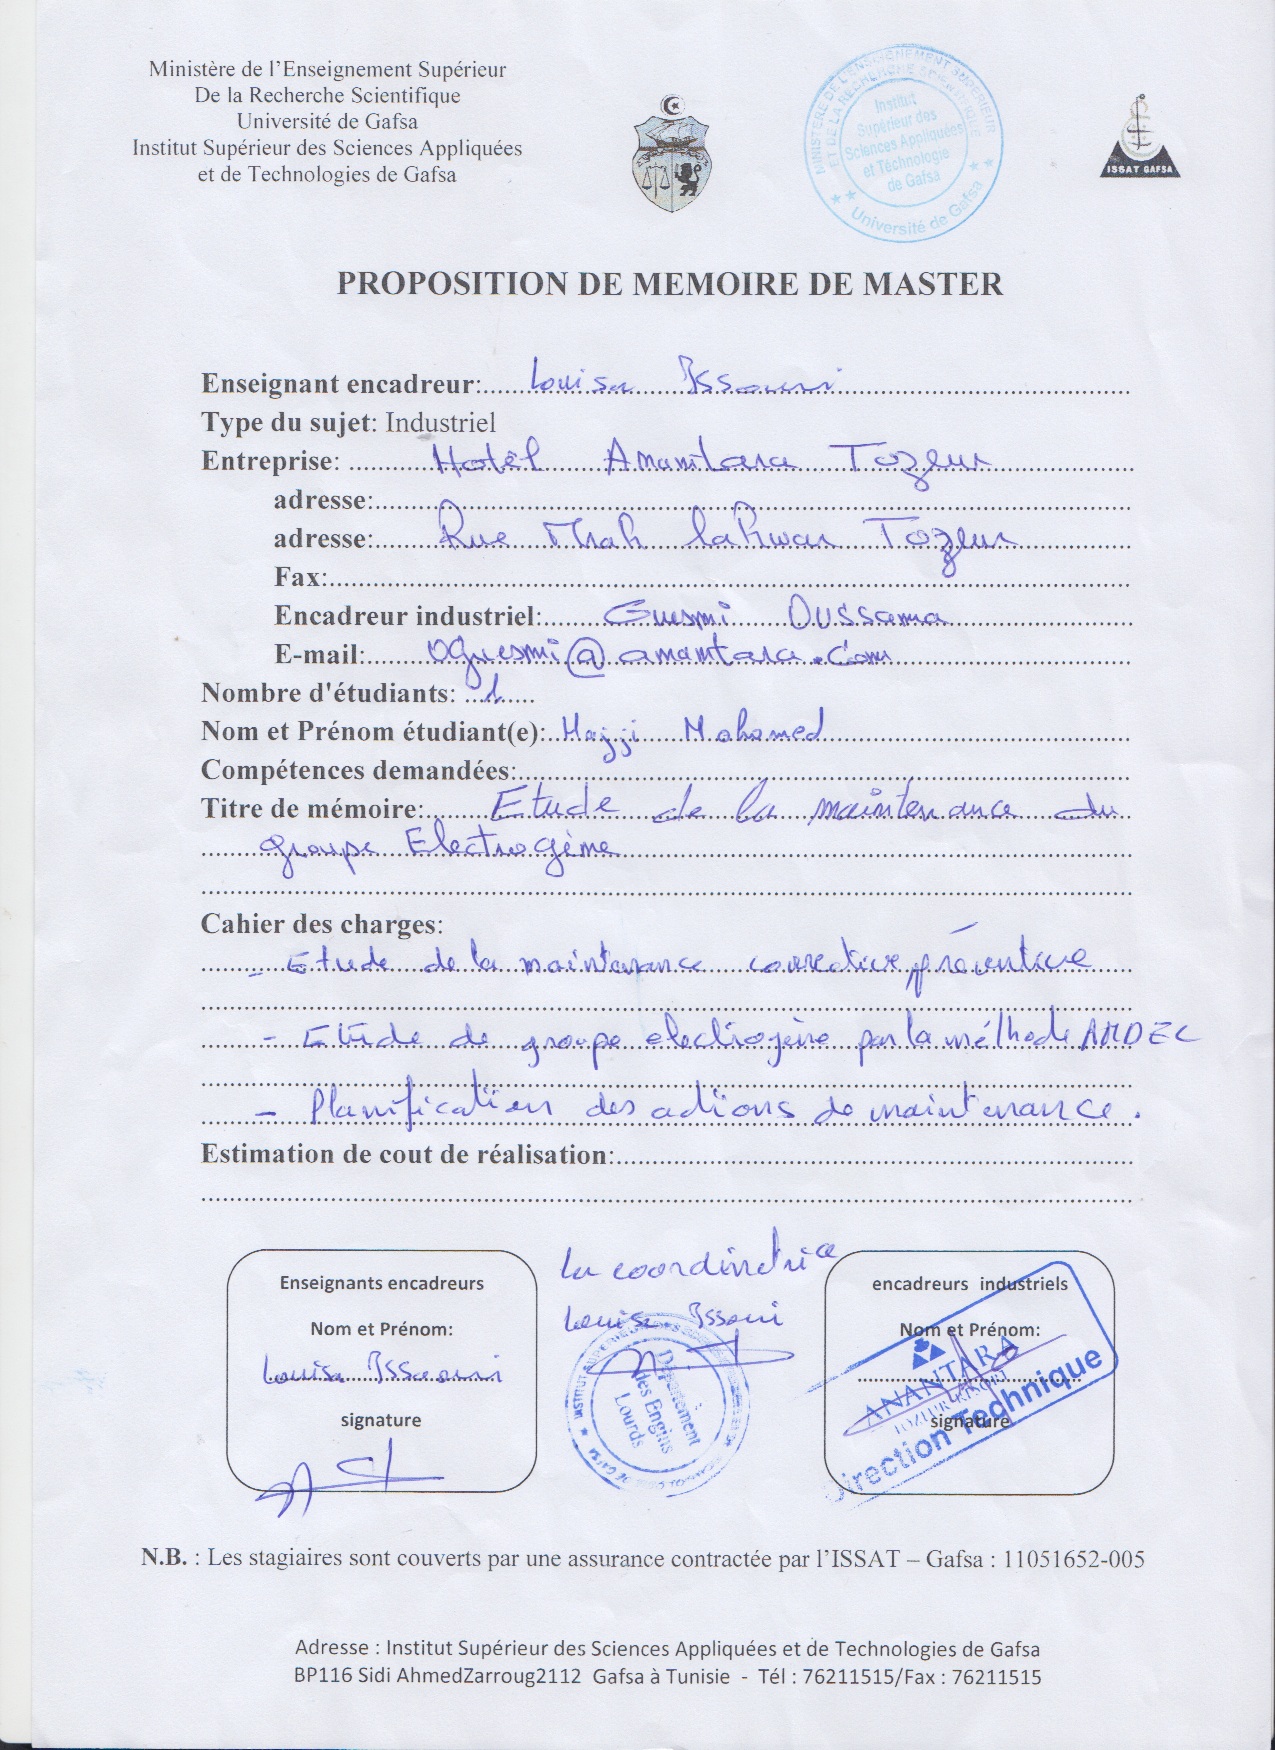 Ministère de l'Enseignement Supérieur
De la Recherche Scientifique
Université de Gafsa
Institut Supérieur des Sciences Appliquées
et de Technologies de Gafsa
MINISTERE DE L'ENSEIGNEMENT SUPERIEUR
ET DE LA RECHERCHE SCIENTIFIQUE
Institut
Supérieur des
Sciences Appliquées
et Téchnologie
de Gafsa
Université de Gafsa
ISSAT GAFSA
PROPOSITION DE MEMOIRE DE MASTER
Enseignant encadreur: Louisa Issaoui
Type du sujet: Industriel
Entreprise: Hotêl Anantara Tozeur
adresse:
adresse: Rue Mrah Tozeur
Fax:
Encadreur industriel: Guesmi Oussama
E-mail: oguesmi@anantara.com
Nombre d'étudiants: 1
Nom et Prénom étudiant(e): Hajji Mohamed
Compétences demandées:
Titre de mémoire: Etude de la maintenance du
groupe Electrogème
Cahier des charges:
- Etude de la maintenance corrective, préventive
- Etude de groupe electrogène par la méthode AMDEC
- Planification des actions de maintenance.
Estimation de cout de réalisation:
La coordinatrice
Louisa Issaoui
Enseignants encadreurs
Nom et Prénom:
Louisa Issaoui
signature
Département
des Engins
Lourds
encadreurs industriels
Nom et Prénom:
ANANTARA
TOZEUR RESORT
signature
Direction Technique
N.B. : Les stagiaires sont couverts par une assurance contractée par l'ISSAT – Gafsa : 11051652-005
Adresse : Institut Supérieur des Sciences Appliquées et de Technologies de Gafsa
BP116 Sidi AhmedZarroug2112 Gafsa à Tunisie - Tél : 76211515/Fax : 76211515